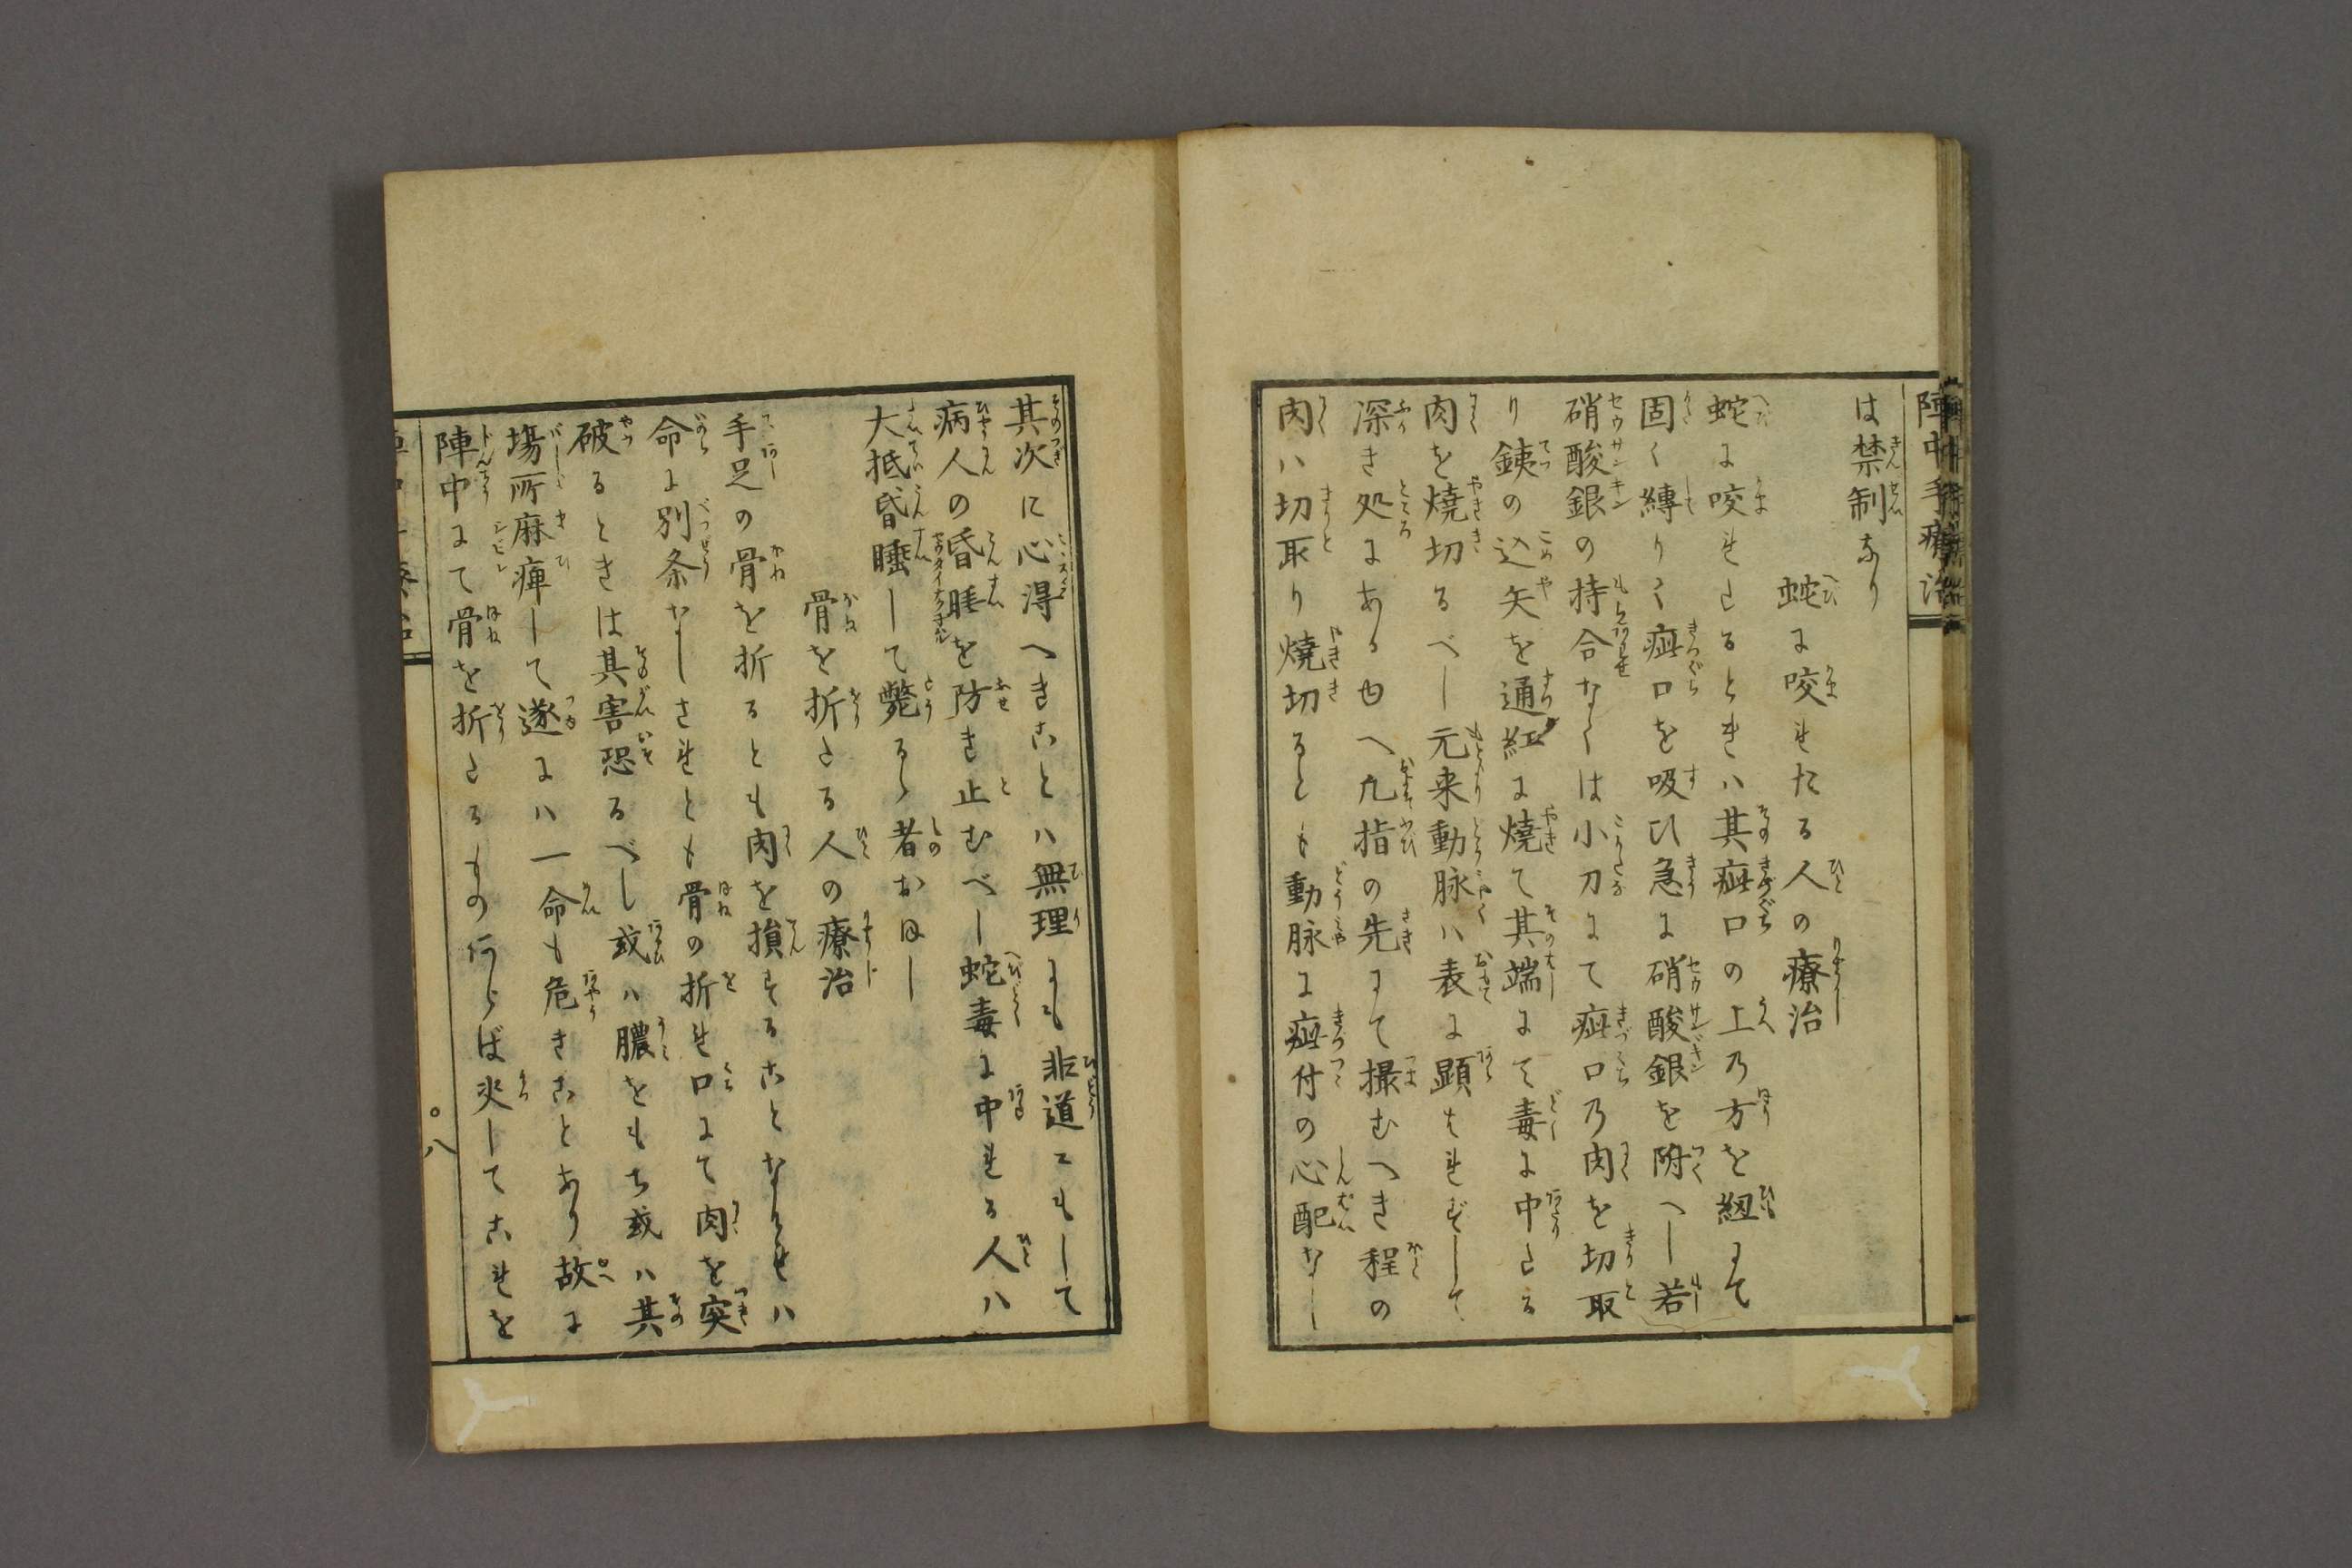 陣中手療治
は禁制なり
蛇に咬れたる人の療治
蛇に咬れたるときハ其疵口の上の方を紐にて
固く縛りて疵口を吸ひ急に硝酸銀を附へし若
硝酸銀の持合なくは小刀にて疵口の肉を切取
り銕の込矢を通紅に燒て其端にて毒に中たる
肉を燒切るべし元来動脉ハ表に顕はれずして
深き処にある也へ凡指の先にて撮むへき程の
肉ハ切取り燒切るとも動脉に疵付の心配なし
其次に心得へきことハ無理にも非道にもして
病人の昏睡を防き止むべし蛇毒に中れる人ハ
大抵昏睡して斃るゝ者おほし
骨を折たる人の療治
手足の骨を折るとも肉を損することなけれハ
命に別条なしされとも骨の折れ口にて肉を突
破るときは其害恐るべし或ハ膿をもち或ハ其
場所麻痺して遂にハ一命も危きことあり故に
陣中にて骨を折たるものあらば決してこれを
八